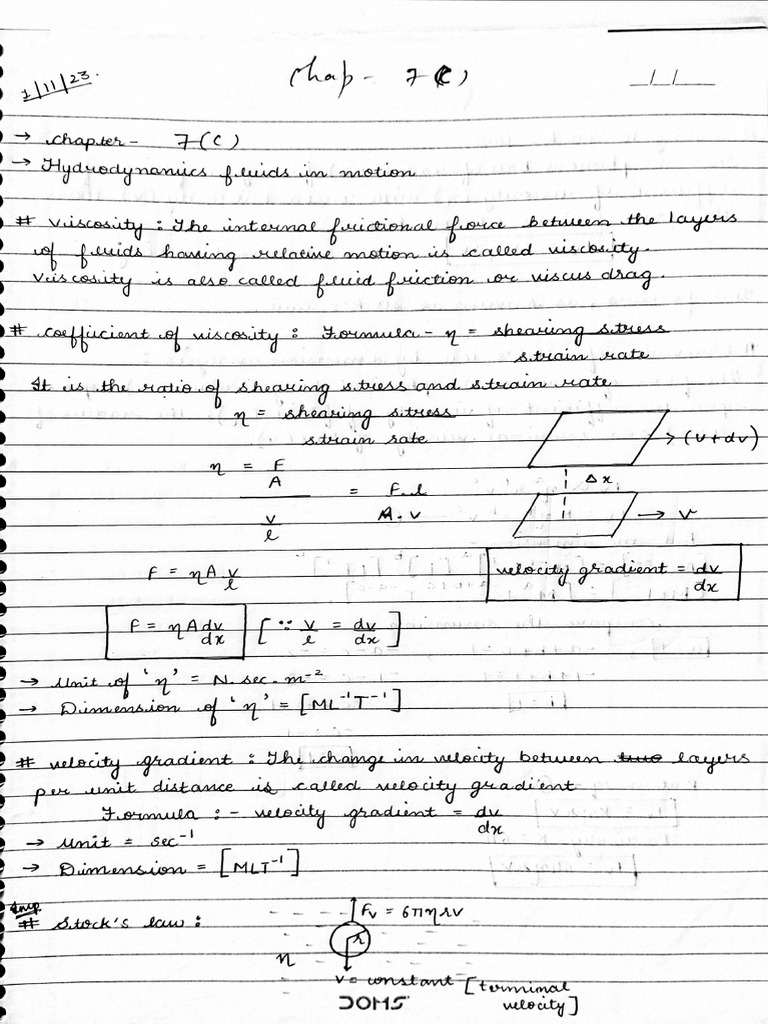 1/11/23.
Chap - 7(C)
__/__/____
→ chapter - 7(C)
→ Hydrodynamics fluids in motion
# viscosity : The internal frictional force between the layers
of fluids having relative motion is called viscosity.
viscosity is also called fluid friction or viscus drag.
# coefficient of viscosity : Formula - η = shearing stress
strain rate
It is the ratio of shearing stress and strain rate
η = shearing stress
strain rate
η = F
A
v
l
= F.l
A.v
→ (v+dv)
Δx
→ v
F = ηA v
l
velocity gradient = dv
dx
F = ηA dv
dx
[∵ v = dv ]
l dx
→ Unit of 'η' = N.sec.m⁻²
→ Dimension of 'η' = [ML⁻¹T⁻¹]
# velocity gradient : The change in velocity between two layers
per unit distance is called velocity gradient
Formula :- velocity gradient = dv
dx
→ Unit = sec⁻¹
→ Dimension = [MLT⁻¹]
Imp
# Stock's law :
Fv = 6πηrv
r
η
v = constant [terminal
velocity]
DOMS